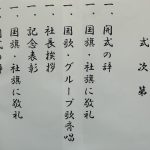 式次第
一、開式の辞
一、国旗・社旗に敬礼
一、国歌・グループ歌斉唱
一、社長挨拶
一、記念表彰
一、国旗・社旗に敬礼